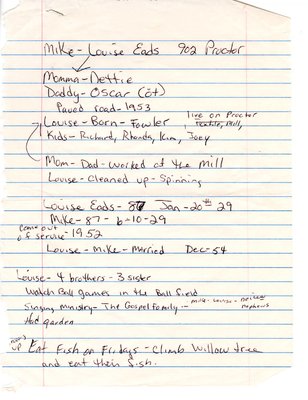 Mike - Louise Eads   902 Proctor
Momma - Nettie
Daddy - Oscar (Ot)
Paved road - 1953
Louise - Born - Fowler
live on Proctor
Textile, Mill,
Kids - Richard, Rhonda, Kim, Joey
Mom - Dad - worked at the Mill
Louise - Cleaned up - Spinning
Louise Eads - 87 Jan - 20th 29
Mike - 87 - 6-10-29
Came out of service - 1952
Louise - Mike - Married   Dec - 54
Louise - 4 brothers - 3 sister
Watch Ball games in the Ball field
Singing ministry - The Gospel Family -
nephews
Had garden
UP
Eat Fish on Fridays - Climb Willow tree
and eat their fish.